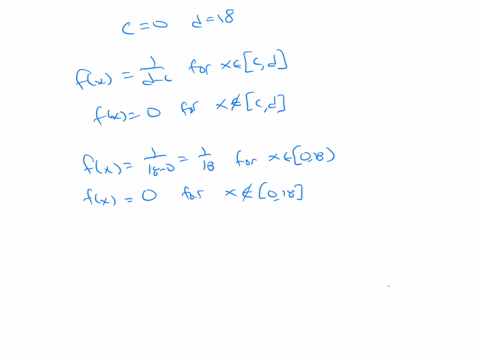 c=0 d=18
f(x) = 1/d-c for x∈[c,d]
f(x)=0 for x∉[c,d]
f(x)= 1/18-0 = 1/18 for x∈[0,18)
f(x) = 0 for x∉[0,18]